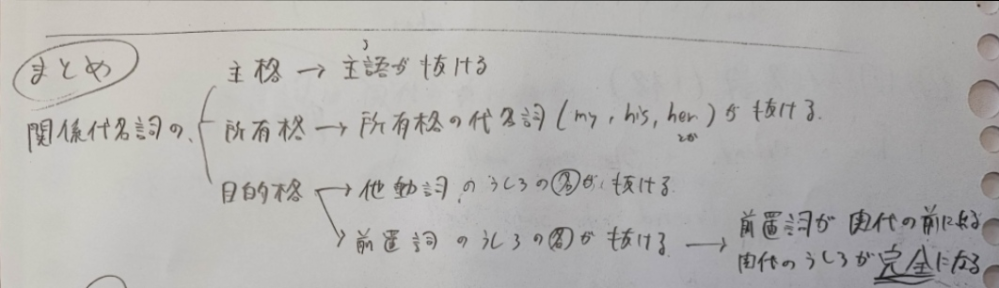 まとめ
主格 → 主語が抜ける
関係代名詞の
所有格 → 所有格の代名詞(my, his, her)が抜ける.
とか
目的格 → 他動詞のうしろの名が抜ける
→ 前置詞のうしろの名が抜ける → 前置詞が関代の前に来る
関代のうしろが完全になる